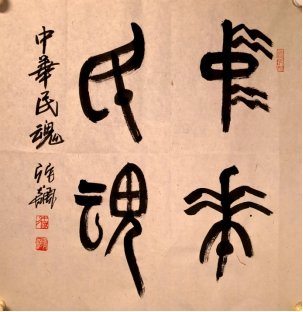 中華
民魂
中華民魂